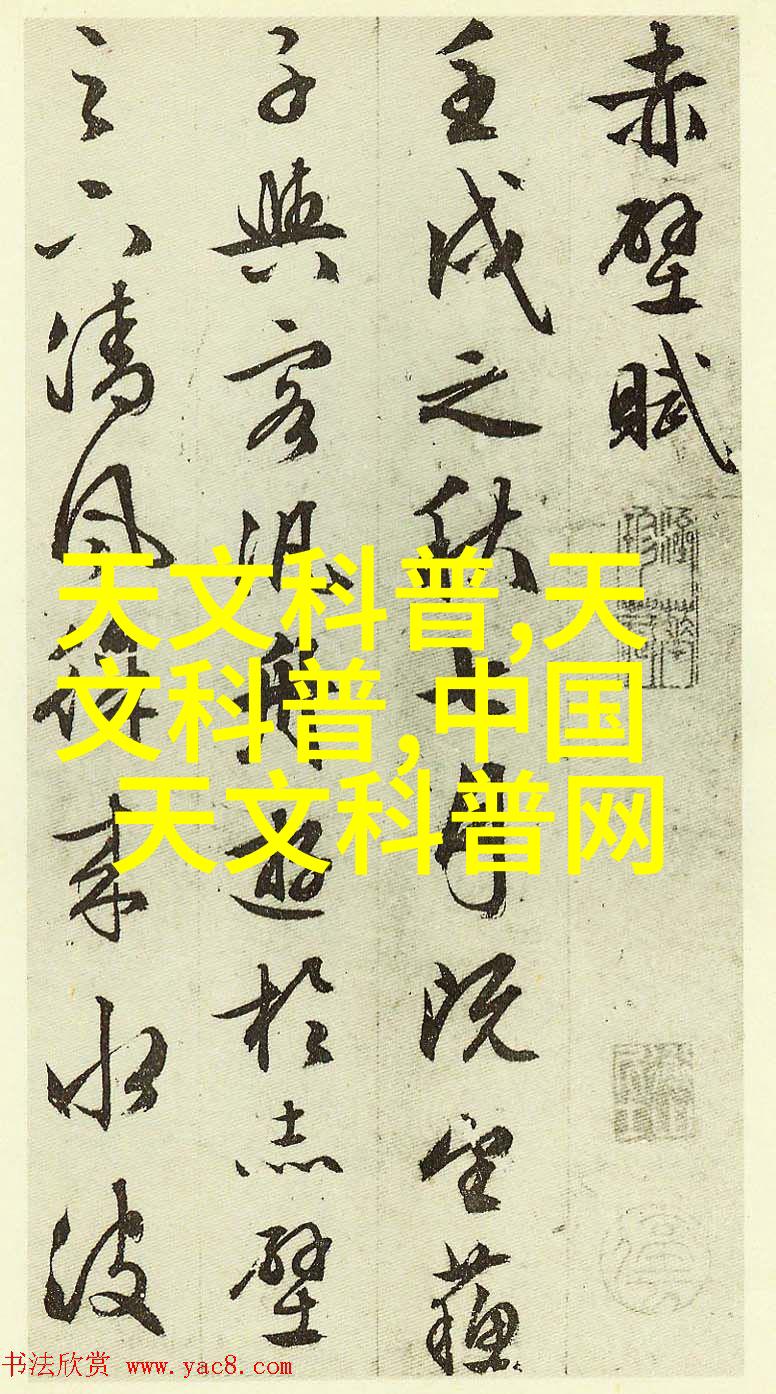 赤壁賦
壬戌之秋七月既望蘇
子與客泛舟遊於赤壁
之下清風徐來水波
天文科普,天
文科普,中国
天文科普网
书法欣赏 www.yac8.com